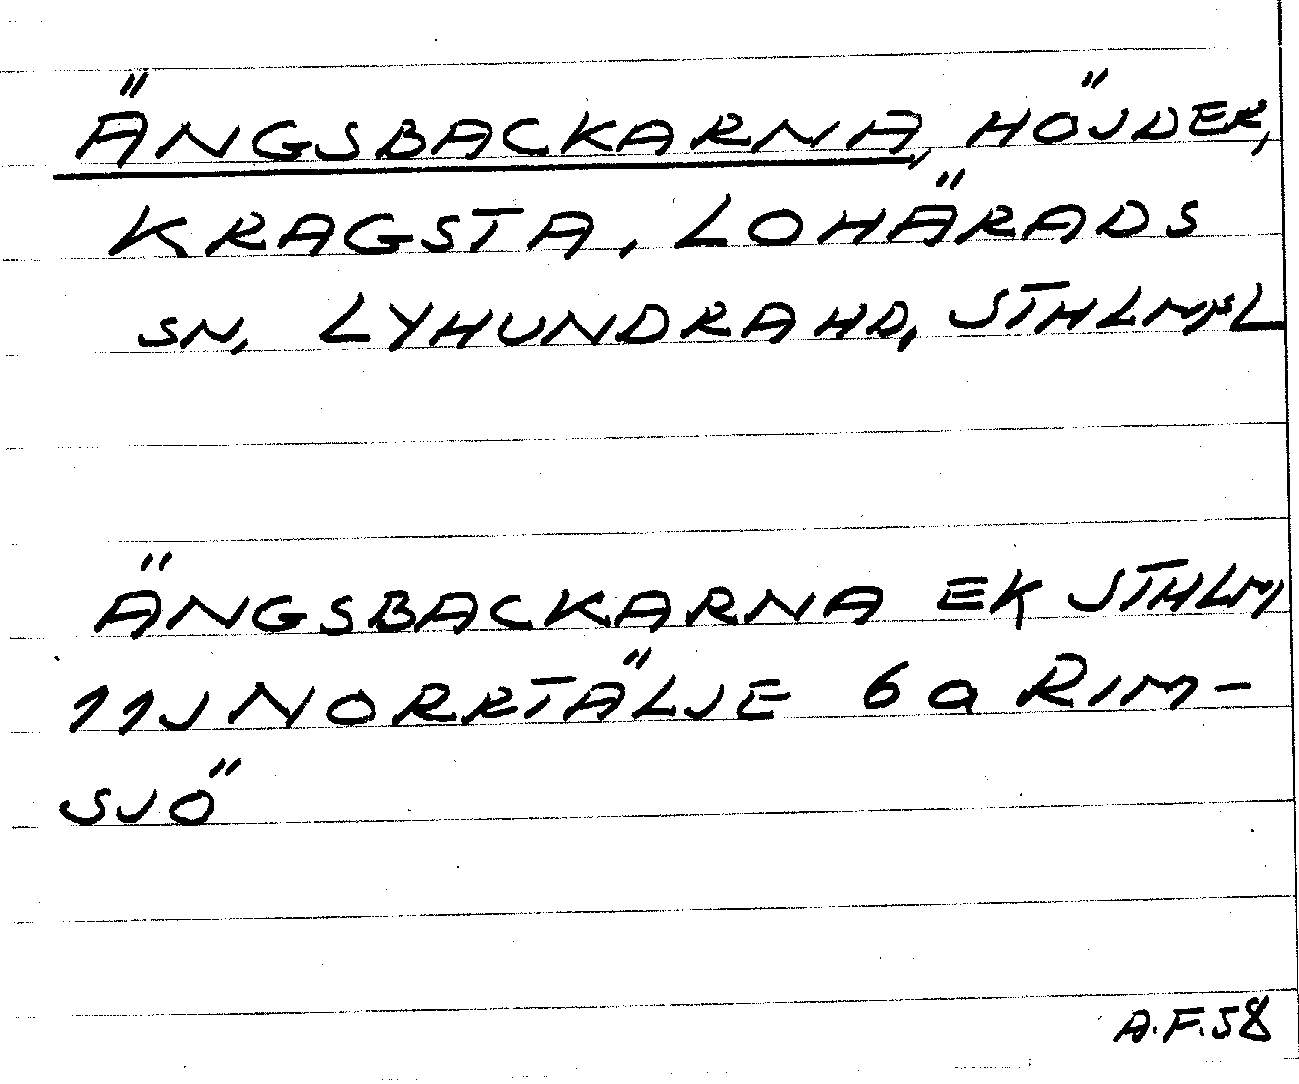 ÄNGSBACKARNA, HÖJDER,
KRAGSTA, LOHÄRADS
SN, LYHUNDRA HD, STHLMSL
ÄNGSBACKARNA EK STHLM
11J NORRTÄLJE 6a RIM-
SJÖ
A.F.58